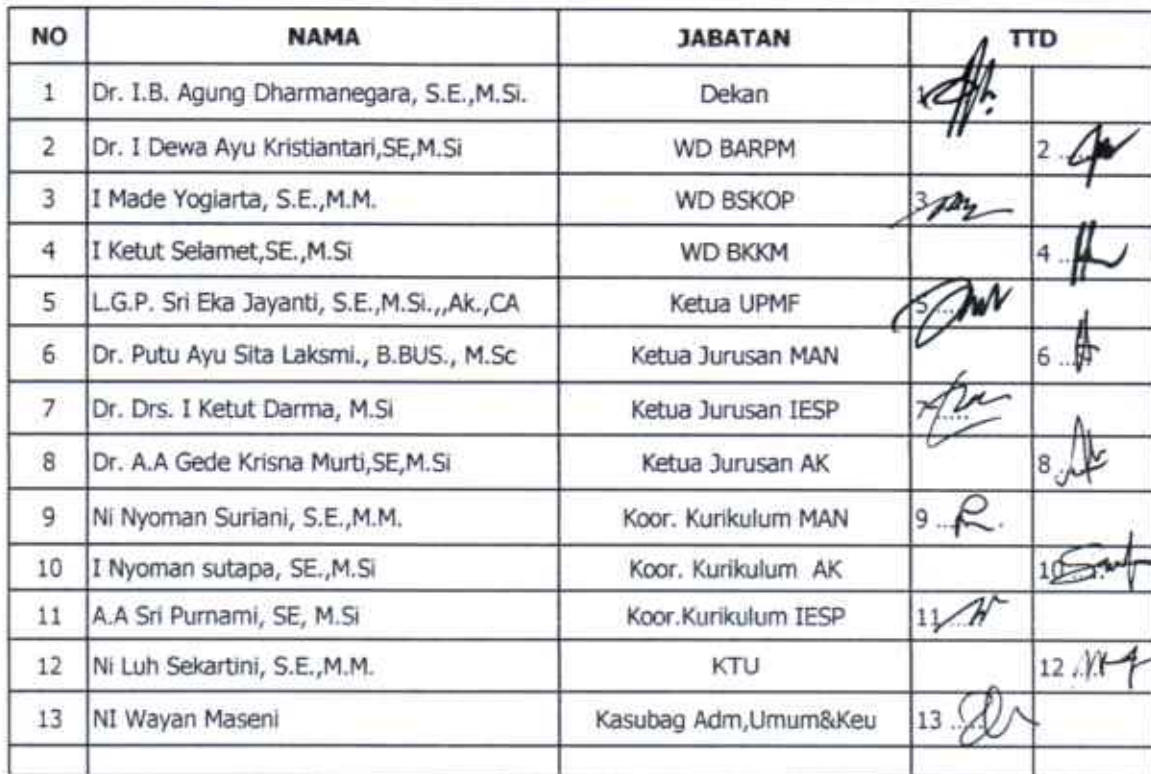 NO NAMA JABATAN TTD
1 Dr. I.B. Agung Dharmanegara, S.E.,M.Si. Dekan 1
2 Dr. I Dewa Ayu Kristiantari,SE,M.Si WD BARPM 2 ...
3 I Made Yogiarta, S.E.,M.M. WD BSKOP 3
4 I Ketut Selamet,SE.,M.Si WD BKKM 4 ...
5 L.G.P. Sri Eka Jayanti, S.E.,M.Si.,,Ak.,CA Ketua UPMF 5 ...
6 Dr. Putu Ayu Sita Laksmi., B.BUS., M.Sc Ketua Jurusan MAN 6 ...
7 Dr. Drs. I Ketut Darma, M.Si Ketua Jurusan IESP 7 .....
8 Dr. A.A Gede Krisna Murti,SE,M.Si Ketua Jurusan AK 8 ...
9 Ni Nyoman Suriani, S.E.,M.M. Koor. Kurikulum MAN 9 ...
10 I Nyoman sutapa, SE.,M.Si Koor. Kurikulum AK 10 ...
11 A.A Sri Purnami, SE, M.Si Koor.Kurikulum IESP 11 ...
12 Ni Luh Sekartini, S.E.,M.M. KTU 12 ...
13 NI Wayan Maseni Kasubag Adm,Umum&Keu 13 ...